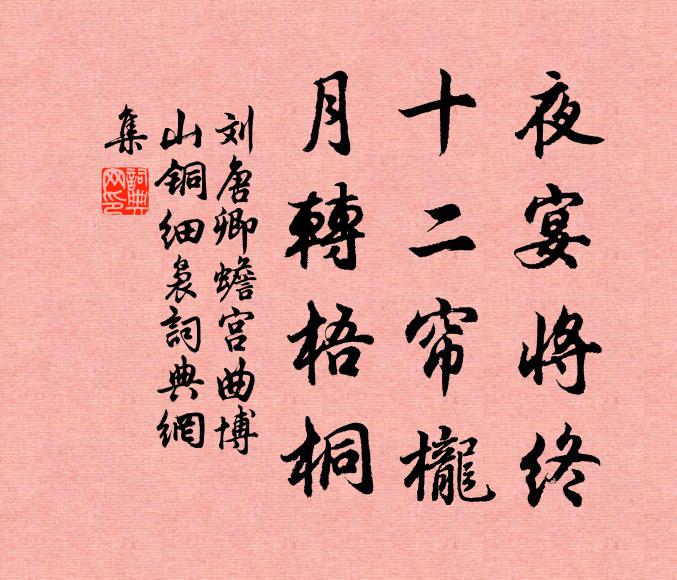 夜宴将终
十二帘櫳
月轉梧桐
刘唐卿蟾宫曲博
山铜细裊詞典網
集
詞典
网印